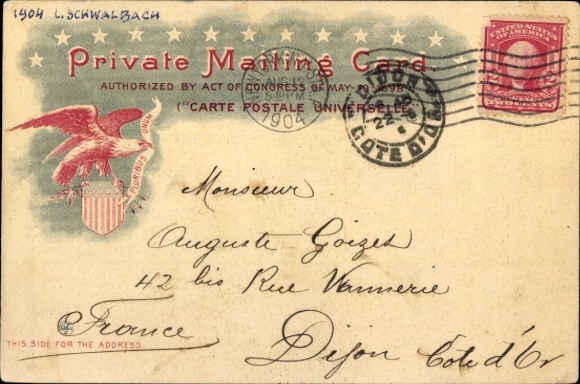 1904 L. SCHWALBACH
Private Mailing Card.
AUTHORIZED BY ACT OF CONGRESS OF MAY 19, 1898
("CARTE POSTALE UNIVERSELLE")
UNITED STATES OF AMERICA
2 2
TWO CENTS
AUG 12
PM
1904
DIJON
22
COTE D'OR
E PLURIBUS UNUM
Monsieur
Auguste Goizet
42 bis Rue Vannerie
France
Dijon Côte d'Or
THIS SIDE FOR THE ADDRESS